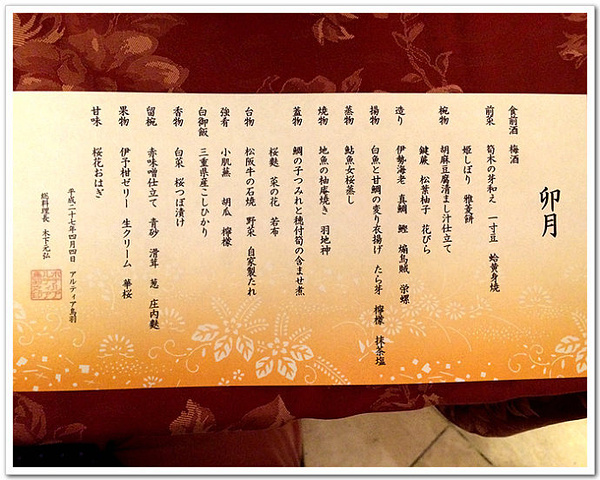 卯月
食前酒 梅酒
前菜 筍木の芽和え 一寸豆 蛤黄身焼
姫しぼり 雅菱餅
椀物 胡麻豆腐清まし汁仕立て
鍵蕨 松葉柚子 花びら
造り 伊勢海老 真鯛 鰹 煽烏賊 栄螺
揚物 白魚と甘鯛の変り衣揚げ たら芽 檸檬 抹茶塩
蒸物 鮎魚女桜蒸し
焼物 地魚の柚庵焼き 羽地神
蓋物 鯛の子つみれと穂付筍の含ませ煮
桜麩 菜の花 若布
台物 松阪牛の石焼 野菜 自家製たれ
強肴 小肌 胡瓜 檸檬
白御飯 三重県産こしひかり
香物 白菜 桜つぼ漬け
留椀 赤味噌仕立て 青砂 滑茸 葱 庄内麩
果物 伊予柑ゼリー 生クリーム 華桜
甘味 桜花おはぎ
平成二十七年四月四日 アルティア鳥羽
総料理長 木下元弘